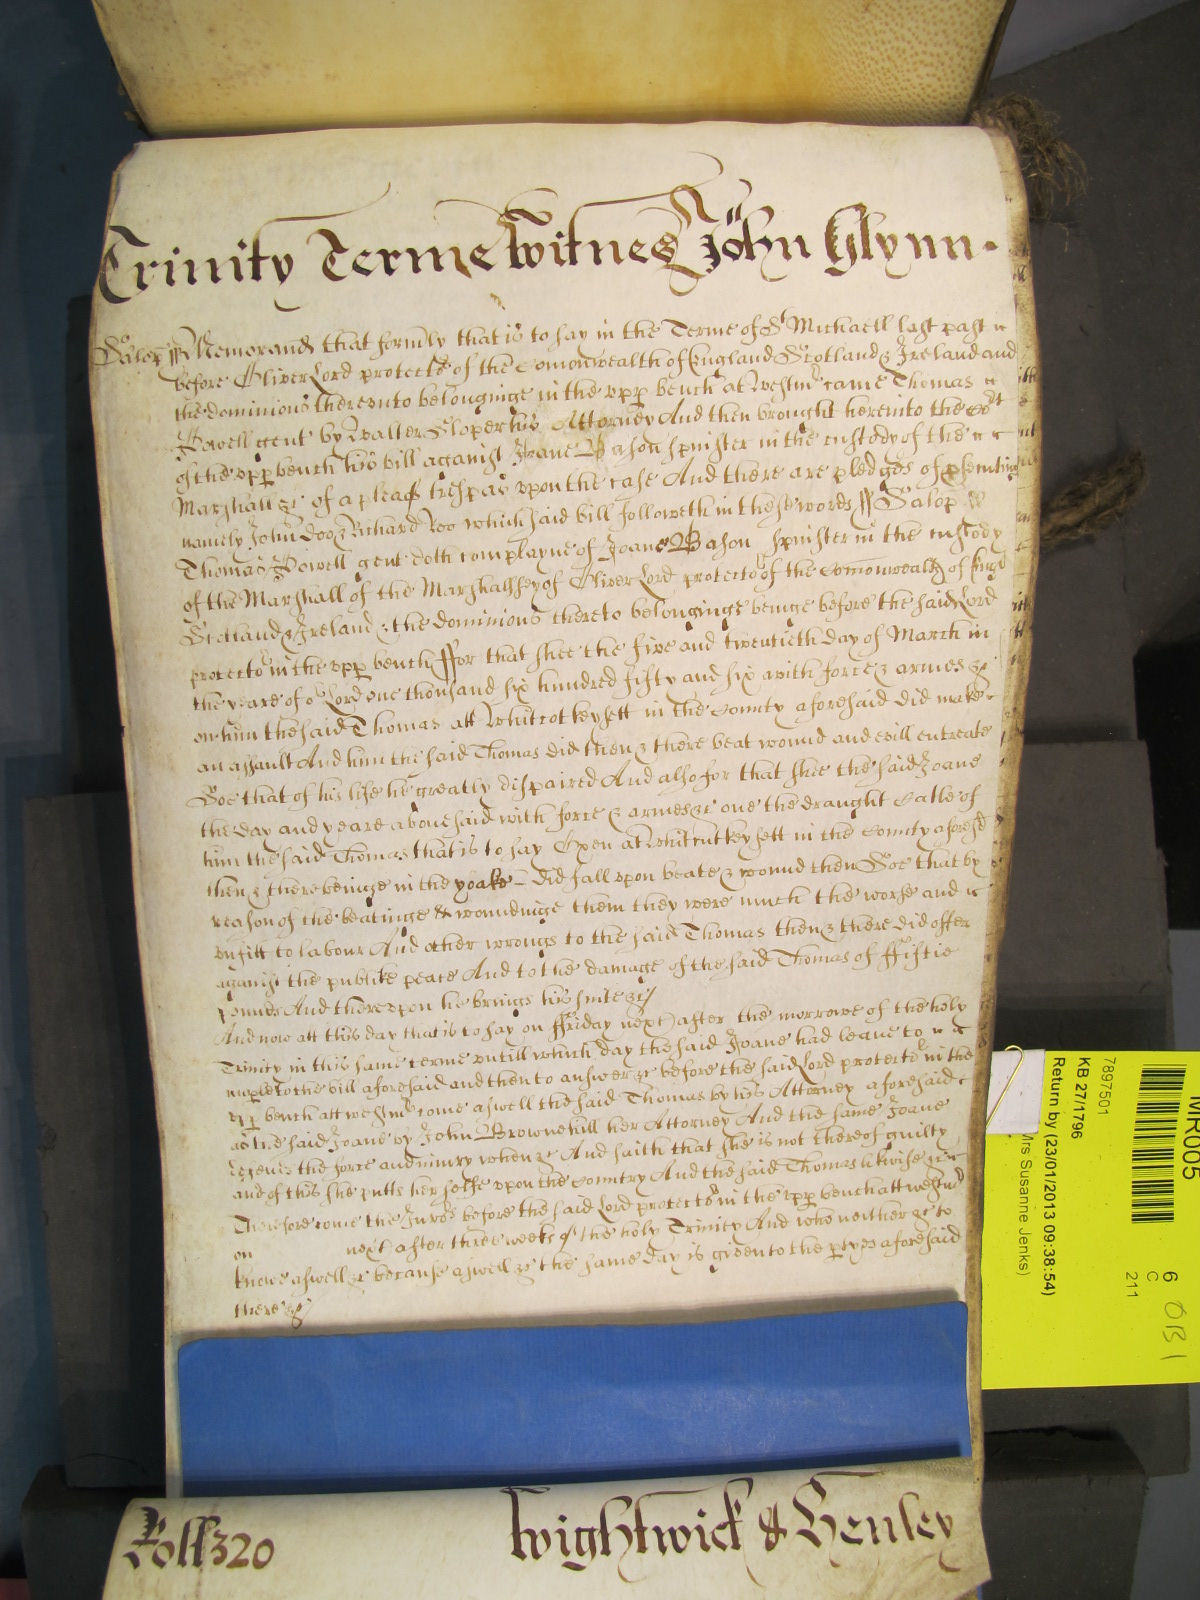 Trinity Terme Witnes John Glynn
Salop ss Memorand that formly that is to say in the Terme of St Michaell last past
before Oliver Lord protector of the Comonwealth of England Scotland & Ireland and
the dominions thereunto belonginge in the upp bench at Westmr came Thomas
Powell gent by Walter Sloper his Attorney And then brought here into the Cort
of the upp bench his bill against Joane Bason spinster in the custody of the
Marshall &c of a plea of trespas upon the case And there are pledges of psenting
namely John Doo & Richard Roo which said bill followeth in these words ss Salop ss
Thomas Powell gent doth complayne of Joane Bason spinster in the custody
of the Marshall of the Marshalsey of Oliver Lord protector of the Comonwealth of Engl
Scotland & Ireland & the dominions thereto belonginge beinge before the said Lord
protector in the upp bench ffor that shee the five and twentieth day of March in
the yeare of or Lord one thousand six hundred fifty and six with force & armes &c
on him the said Thomas att Whitcot keysett in the County aforesaid did make
an assault And him the said Thomas did then & there beat wound and evill entreate
Soe that of his life he greatly dispaired And also for that shee the said Joane
the day and yeare abovesaid with force & armes &c one the draught Catle of
him the said Thomas that is to say Oxen at Whitcut keysett in the County aforesd
then & there beinge in the yoake did fall upon beate & wound them Soe that by
reason of the beatinge & woundinge them they were much the worse and
unfitt to labour And other wrongs to the said Thomas then & there did offer
against the publike peace And to the damage of the said Thomas of ffiftie
pounds And thereupon he brings his suite &c
And now att this day that is to say on ffriday next after the morrowe of the holy
Trinity in this same terme untill which day the said Joane had leave to
imple to the bill aforesaid and then to answer &c before the said Lord protector in the
upp bench att Westmr come aswell the said Thomas by his Attorney aforesaid
as the said Joane by John Brownehill her Attorney And the same Joane
defends the force and iniury when &c And saith that she is not thereof guilty
and of this she putts her selfe upon the Country And the said Thomas likwise &c
Therefore come the Jurors before the said Lord protector in the upp bench att Westmr
on next after three weeks of the holy Trinity And who neither &c to
knowe aswell &c because aswell &c the same day is given to the ptyes aforesaid
there &c
Roll 320
Wightwick & Henley
MR005
7897501
KB 27/1796
Return by (23/01/2013 09:38:54)
Mrs Susanne Jenks)
6
C
211
OB1